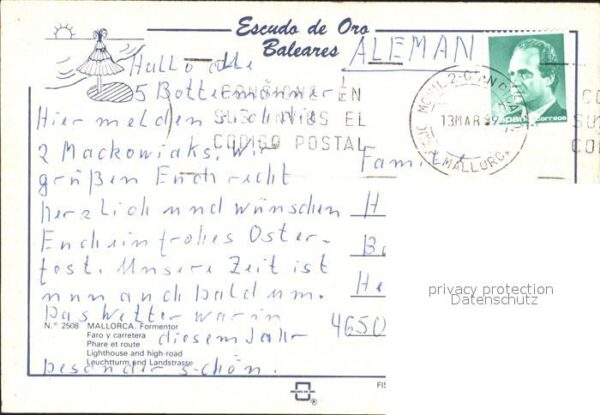 Escudo de Oro
Baleares
ALEMAN
Hallo alle
5 Bottermänner!
CONSIGNE EN
Hier melden sich die
SUS ENVIOS EL
CODIGO POSTAL
2 Mackowiaks. Wir
grüßen Euch recht
herzlich und wünschen
Euch ein frohes Oster-
fest. Unsere Zeit ist
nun auch bald um.
Das Wetter war in
diesem Jahr
besonders schön.
13 MAR
MALLORCA
correos
Famil
H
B
He
4650
privacy protection
Datenschutz
N.º 2508 MALLORCA. Formentor
Faro y carretera
Phare et route
Lighthouse and high-road
Leuchtturm und Landstrasse
FIS